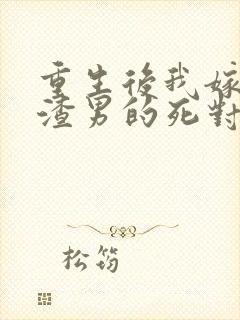 重生後我嫁
渣男的死對
松筠